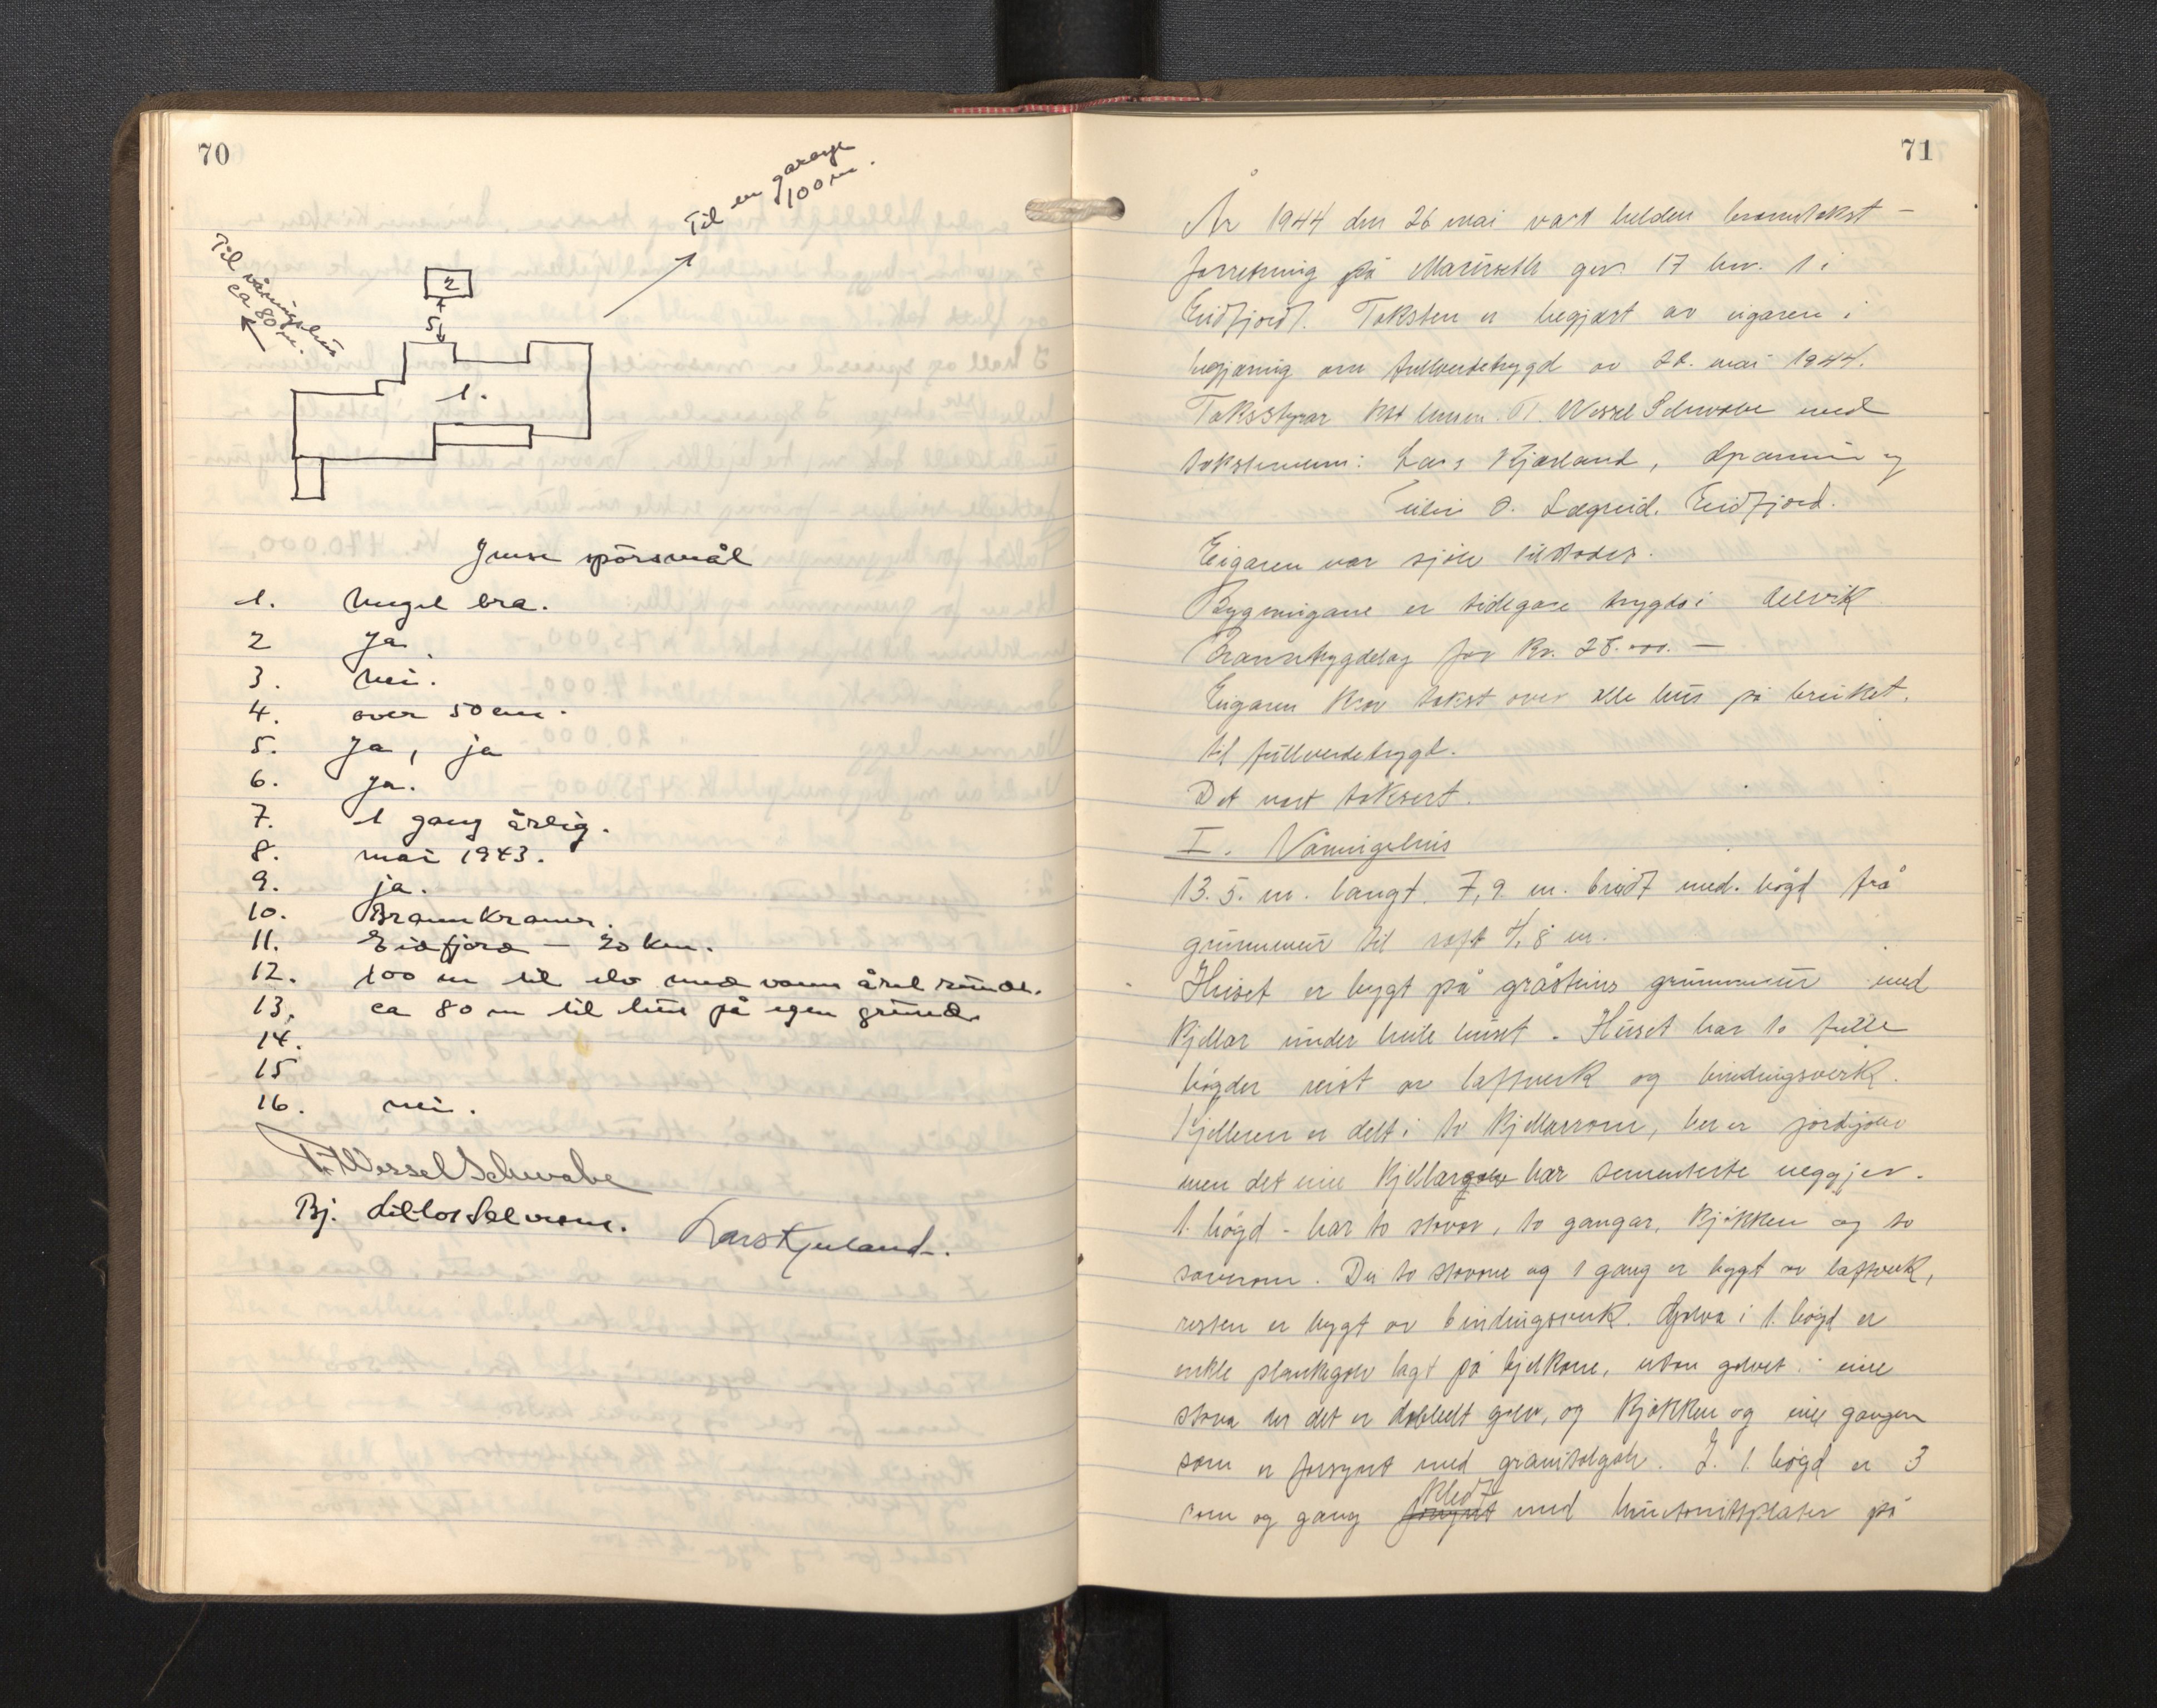 70
Til en garasje
100 m.
Til våningshus
ca 80 m.
2
5
1.
Ymse spörsmål
1. Meget bra.
2 Ja
3. Nei.
4. over 50 cm.
5. Ja, ja
6. Ja.
7. 1 gang årlig.
8. mai 1943.
9. ja.
10. Brannkraner.
11. Eidfjord — 20 km.
12. 100 m til elv med vann året rundt.
13. ca 80 m til hus på egen grund
14.
15
16. nei.
Wessel Schwabe
Bj. Lars Kjerland.
71
År 1944 den 26 mai vart helden branntakst-
forretning på Maurseth gnr. 17 bnr. 1 i
Eidfjord. Taksten er begjært av eigaren i
begjæring om fullverdetrygd av 22. mai 1944.
Takststyrar Wessel Schwabe med
takstmenn: Lars Kjærland, og
O. Lægreid. Eidfjord.
Eigaren var sjölv tilstades.
Bygningane er tidlegare trygda i Ulvik
Branntrygdelag for kr. 28.000. —
Eigaren krov takst over alle hus på bruket.
til fullverdetrygd.
Det vart taksert.
I. Våningshus
13.5. m. langt. 7,9 m. breidt med. högd frå
grunnmur til raft 4,8 m.
Huset er bygt på gråsteins grunnmur med
kjellar under heile huset. Huset har to fulle
högder reist av laftverk og bindingsverk.
Kjelleren er delt i to kjellarrom, her er jordgolv
men det eine kjellargolv har sementerte veggjer.
1. högd - har to stovor, to gangar, kjökken og to
soverom. Dei to stovone og 1 gang er bygt av laftverk,
resten er bygt av bindingsverk. Golva i 1. högd er
enkle plankegolv lagt på bjelkane, utan golvet i eine
stova der det er dobbelt golv, og kjökken og eine gangen
som er forsynt med granitolgolv. I. 1. högd er 3
rom og gang forsynt kledt med huntonittplater på